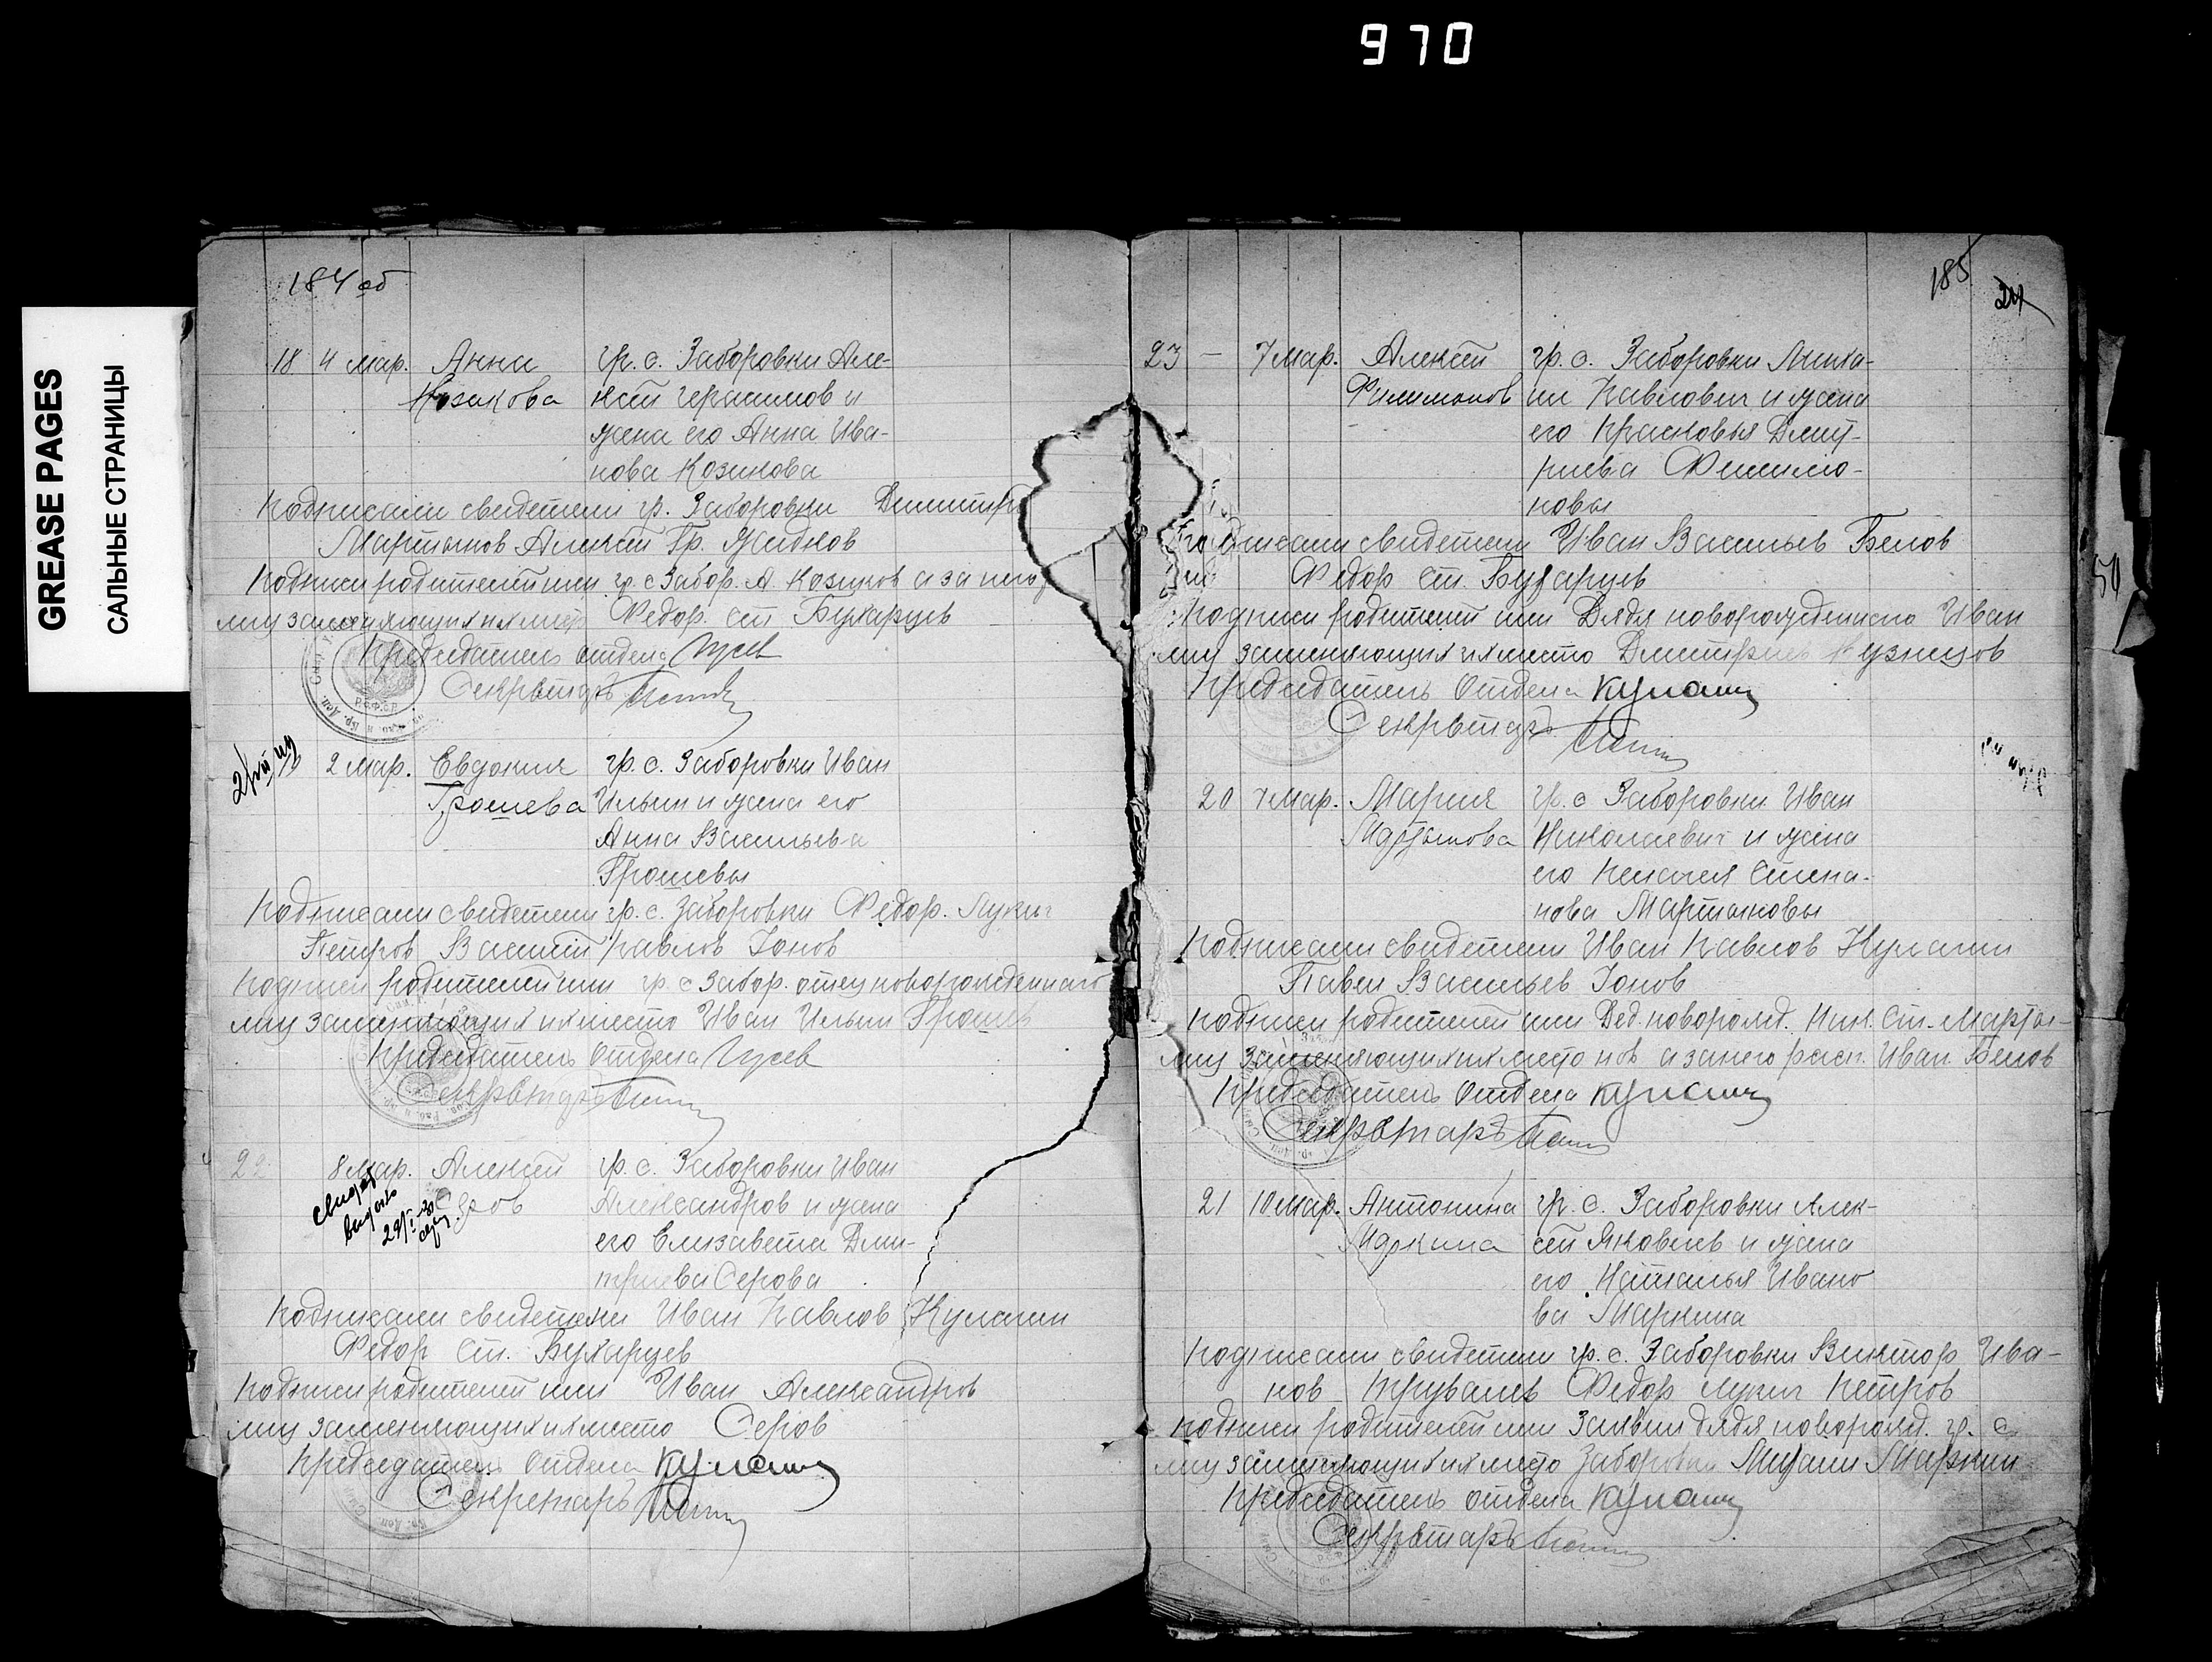 970
GREASE PAGES
САЛЬНЫЕ СТРАНИЦЫ
184 об
18 4 мар. Анна гр. с. Заборовки Але-
Козикова ксей Герасимов и
жена его Анна Ива-
нова Козикова
Подписали свидетели гр. Заборовки Дмитр
Мартынов Алексей Гр. 
Подписи родителей или гр. с Забор. А. Козиков а за него
лиц заменяющих их место Федор. Ст. Бухарцев
Председатель отдела Гусев
Секретарь
Р.С.Ф.С.Р.
2 мар. Евдокия гр. с. Заборовки Иван
Грошева Ильин и жена его
Анна Васильева
Грошевы
Подписали свидетели гр. с. Заборовки Федор. Лукич
Петров Василий Павлов Ионов
Подписи родителей или гр. с Забор. отец новорожденного
лиц заменяющих их место Иван Ильин Грошев
Председатель отдела Гусев
Секретарь
22 8 мар. Алексей гр. с. Заборовки Иван
Серов Александров и жена
его Елизавета Дми-
триева Серова
Подписали свидетели Иван Павлов Кулагин
Федор Ст. Бухарцев
Подписи родителей или Иван Александров
лиц заменяющих их место Серов
Председатель отдела
Секретарь
185
24
23 — 7 мар. Алексей гр. с. Заборовки Миха-
Филимонов ил Павлович и жена
его Прасковья Дмит-
риева Филимо-
новы
Подписали свидетели Иван Васильев Белов
Федор Ст. Бухарцев
Подписи родителей или Дядя новорожденного Иван
лиц заменяющих их место Дмитриев Кузнецов
Председатель отдела
Секретарь
20 7 мар. Мария гр. с Заборовки Иван
Мартынова Николаевич и жена
его Пелагея Степа-
нова Мартыновы
Подписали свидетели Иван Павлов Кулагин
Павел Васильев Ионов
Подписи родителей или Дед. новорожд. Ник. Ст. Марты-
лиц заменяющих их место нов а за него расп. Иван Белов
Председатель отдела
Секретарь
21 10 мар. Антонина гр. с. Заборовки Алек-
Маркина сей Яковлев и жена
его Наталья Ивано
ва Маркина
Подписали свидетели гр. с. Заборовки Виктор Ива-
нов Федор Лукич Петров
Подписи родителей или Заявил дядя новорожд. гр. с.
лиц заменяющих их место Заборовки Михаил Маркин
Председатель отдела
Секретарь
50